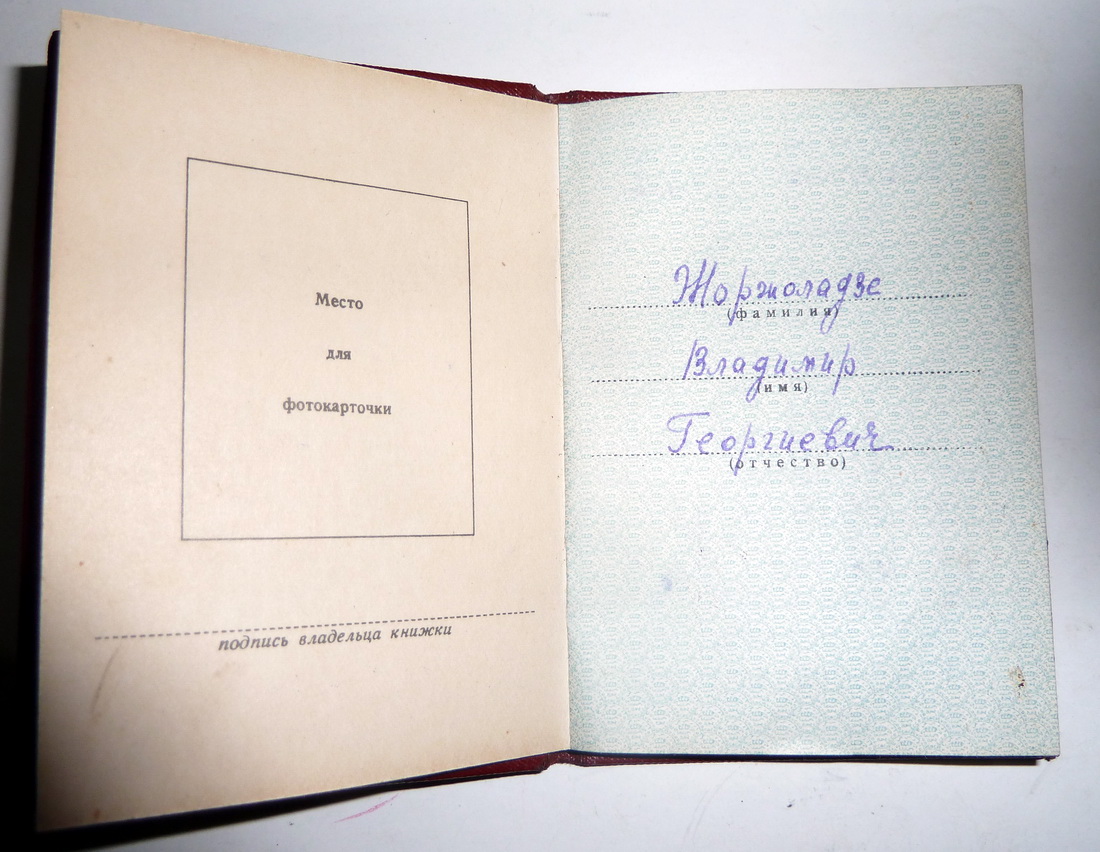 Место
для
фотокарточки
подпись владельца книжки
Жоржоладзе
(фамилия)
Владимир
(имя)
Георгиевич
(отчество)